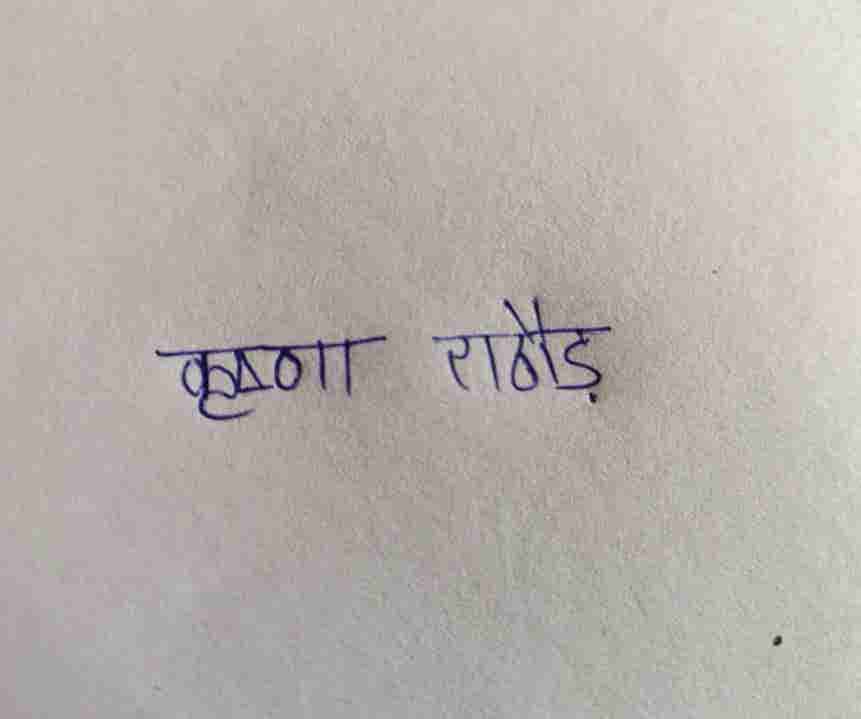 कृष्णा राठौड़